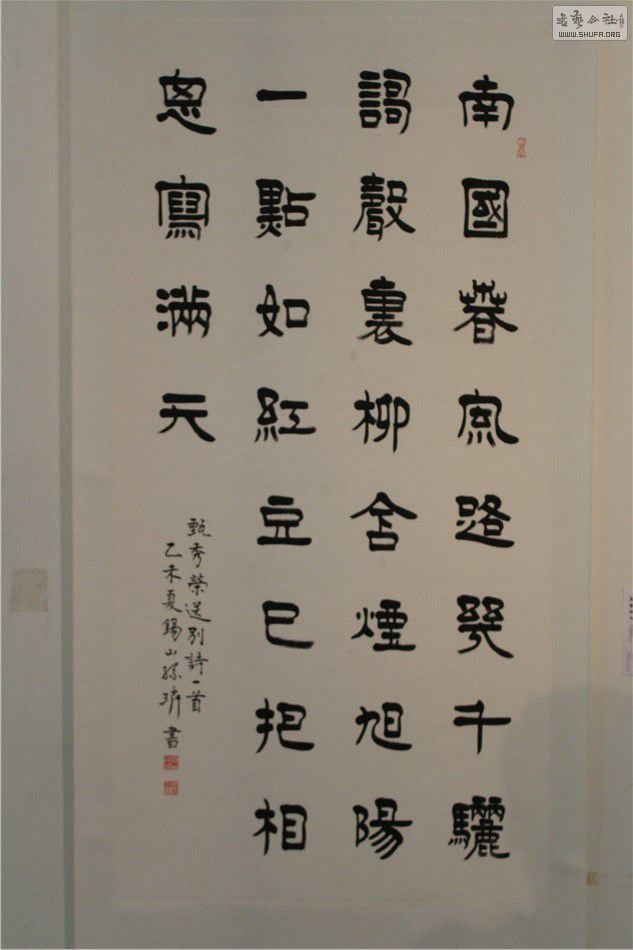 書藝公社
WWW.SHUFA.ORG
南國春風路幾千驪
謌聲裏柳含煙旭陽
一點如紅豆已把相
思寫滿天
甄秀榮送別詩一首
乙未夏錫山孫書